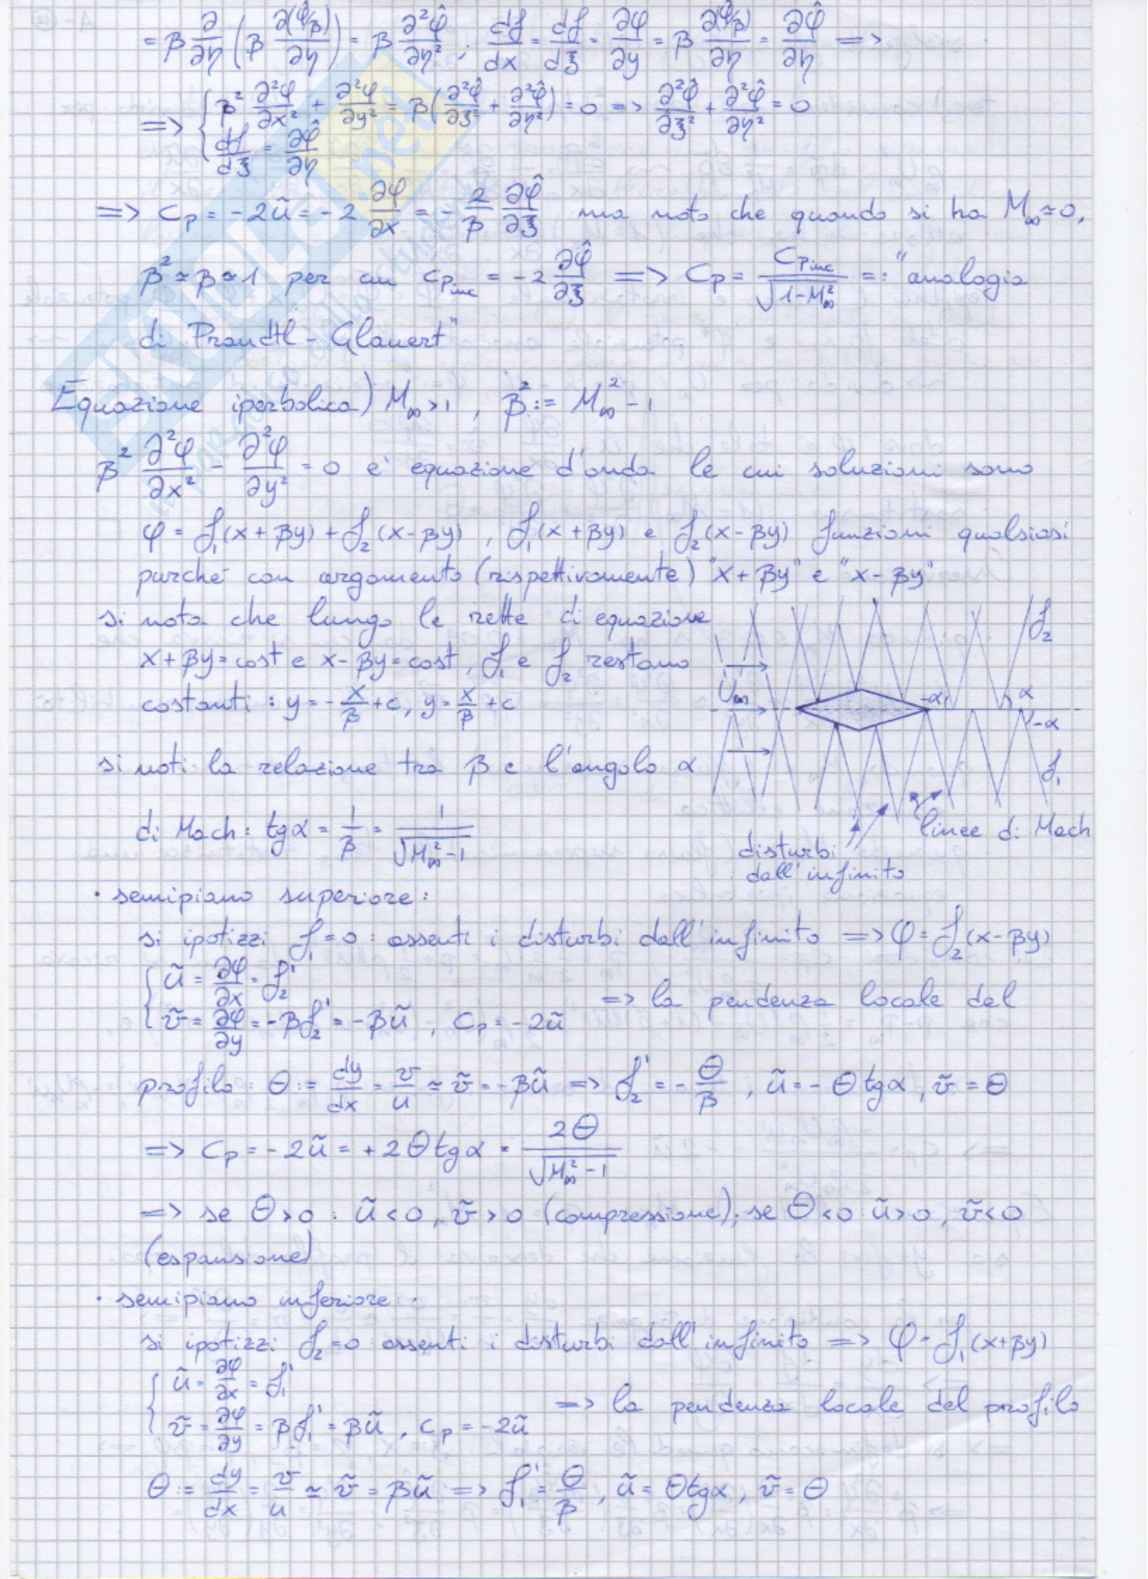 = β ∂/∂η (β ∂(φ̂/β)/∂η) = β ∂²φ̂/∂η² ; df/dx = df/dξ = ∂φ/∂y = β ∂(φ̂/β)/∂η = ∂φ̂/∂η =>
=> { β² ∂²φ/∂x² + ∂²φ/∂y² = β(∂²φ̂/∂ξ² + ∂²φ̂/∂η²) = 0 => ∂²φ̂/∂ξ² + ∂²φ̂/∂η² = 0
df/dξ = ∂φ̂/∂η
=> Cp = -2ũ = -2 ∂φ/∂x = - 2/β ∂φ̂/∂ξ ma noto che quando si ha M∞ ≃ 0,
β² ≃ β ≃ 1 per cui Cp_inc = -2 ∂φ̂/∂ξ => Cp = Cp_inc/√(1-M∞²) =: "analogia
di Prandtl - Glauert"
Equazione iperbolica) M∞ > 1 , β² := M∞² - 1
β² ∂²φ/∂x² - ∂²φ/∂y² = 0 e' equazione d'onda le cui soluzioni sono
φ = f₁(x + βy) + f₂(x - βy) , f₁(x + βy) e f₂(x - βy) funzioni qualsiasi
purche' con argomento (rispettivamente) "x + βy" e "x - βy"
si nota che lungo le rette di equazione
x + βy = cost e x - βy = cost , f₁ e f₂ restano
costanti : y = - x/β + c , y = x/β + c
si noti la relazione tra β e l'angolo α
di Mach : tgα = 1/β = 1/√(M∞² - 1)
f₂
U∞
-α
α
-α
f₁
linee di Mach
disturbi
dall'infinito
• semipiano superiore :
si ipotizzi f₁ = 0 : assenti i disturbi dall'infinito => φ = f₂(x - βy)
{ ũ = ∂φ/∂x = f₂'
ṽ = ∂φ/∂y = -βf₂' = -βũ , Cp = -2ũ => la pendenza locale del
profilo : Θ := dy/dx = v/u ≃ ṽ = -βũ => f₂' = - Θ/β , ũ = - Θ tgα , ṽ = Θ
=> Cp = -2ũ = +2Θ tgα = 2Θ/√(M∞² - 1)
=> se Θ > 0 : ũ < 0 , ṽ > 0 (compressione) ; se Θ < 0 ũ > 0 , ṽ < 0
(espansione)
• semipiano inferiore :
si ipotizzi f₂ = 0 assenti i disturbi dall'infinito => φ = f₁(x + βy)
{ ũ = ∂φ/∂x = f₁'
ṽ = ∂φ/∂y = βf₁' = βũ , Cp = -2ũ => la pendenza locale del profilo
Θ := dy/dx = v/u ≃ ṽ = βũ => f₁' = Θ/β , ũ = Θtgα , ṽ = Θ